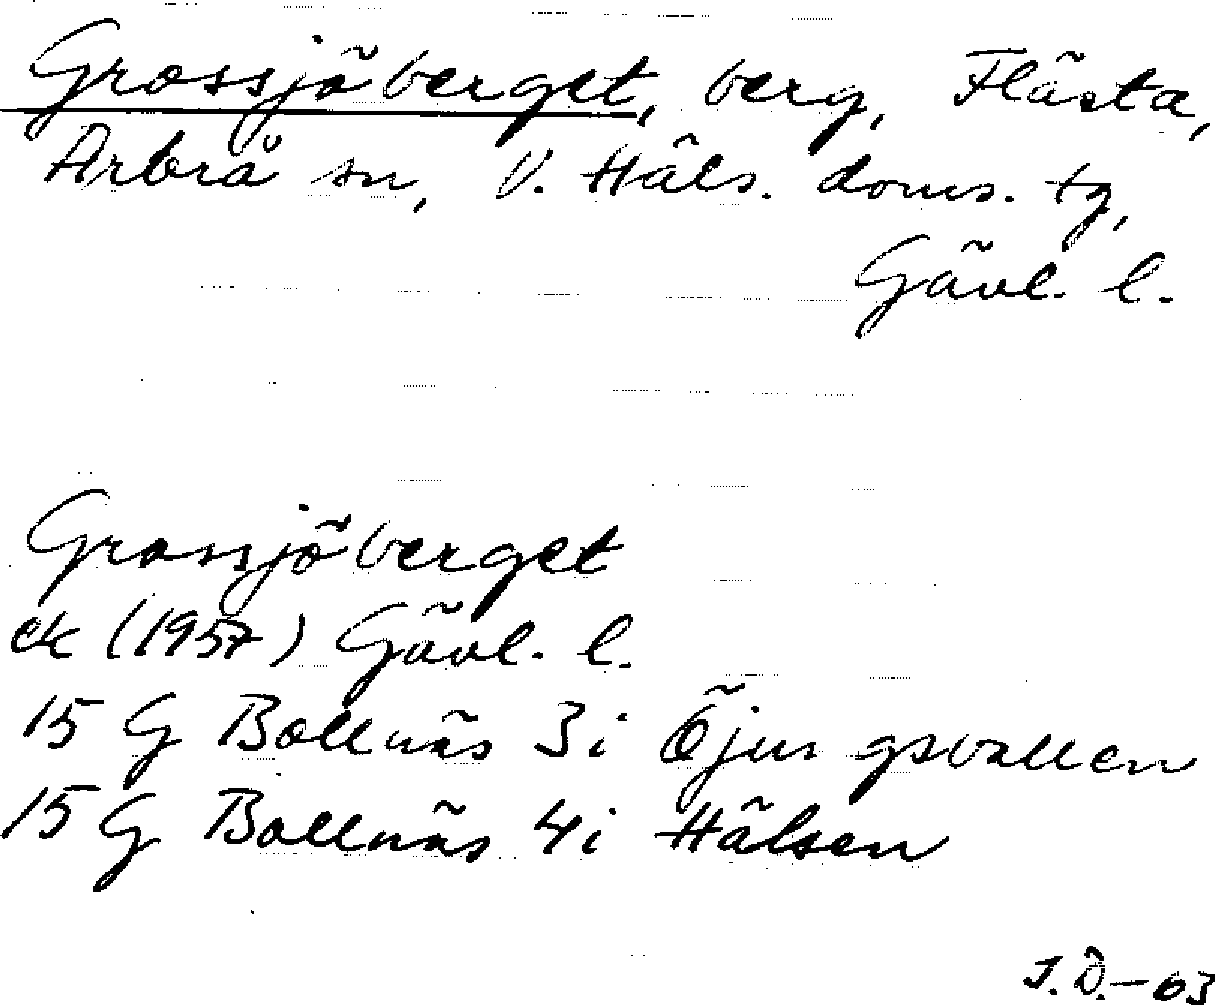 Grossjöberget, berg, Flästa,
Arbrå sn, V. Häls. doms. tg,
Gävl. l.
Grossjöberget
ek (1957) Gävl. l.
15 G Bollnäs 3i Öjungsvallen
15 G Bollnäs 4i Hälsen
J.D.-63